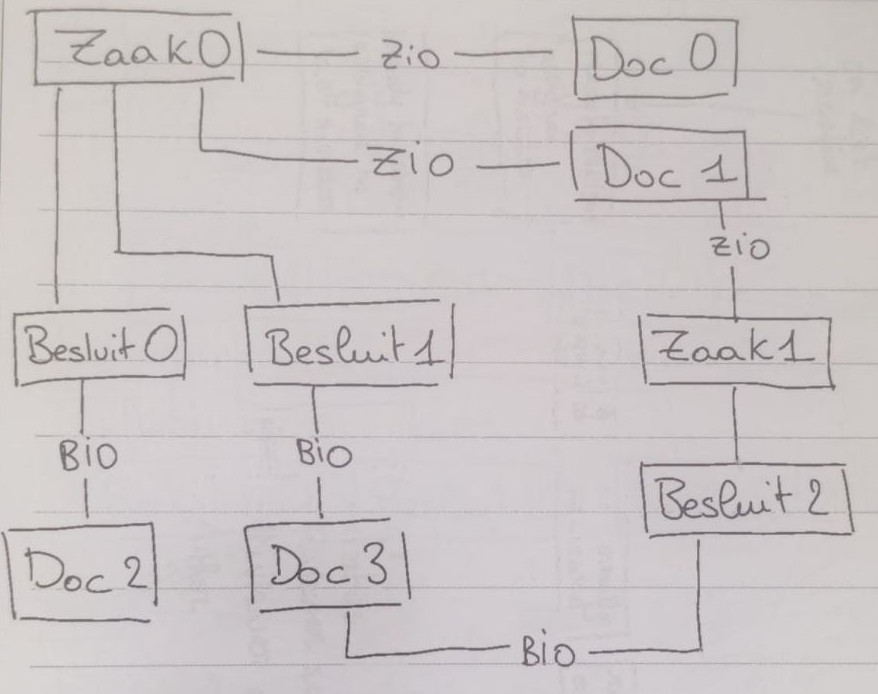 Zaak0 Zio Doc 0
Zio Doc 1
Zio
Besluit 0 Besluit 1 Zaak1
BiO BiO
Besluit 2
Doc 2 Doc 3
BiO